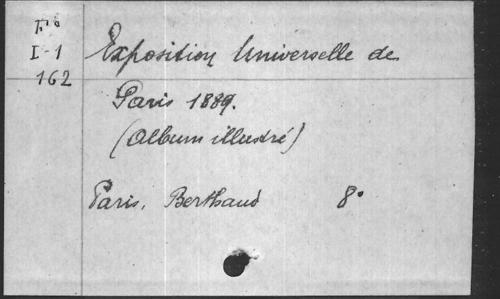 Fº
I-1
162
Exposition Universelle de
Paris 1889.
(Album illustré)
Paris, Berthaud 8º